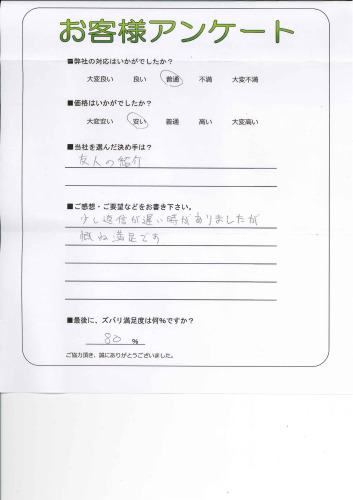 お客様アンケート
■弊社の対応はいかがでしたか?
大変良い 良い 普通 不満 大変不満
■価格はいかがでしたか?
大変安い 安い 普通 高い 大変高い
■当社を選んだ決め手は?
友人の紹介
■ご感想・ご要望などをお書き下さい。
少し返信が遅い時がありましたが
概ね満足です
■最後に、ズバリ満足度は何%ですか?
80 %
ご協力頂き、誠にありがとうございました。